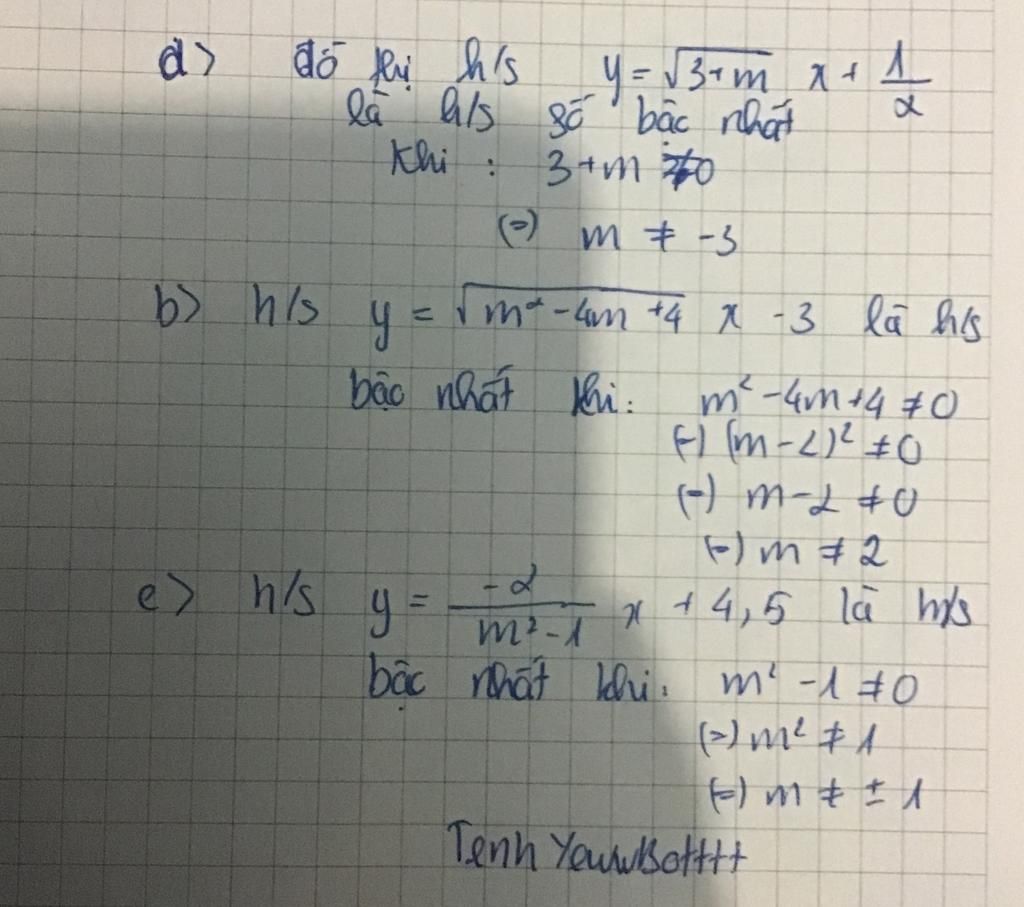 d> đồ thị h/s y = √3+m x + 1/2
là h/s số bậc nhất
Khi : 3+m ≠0
(=) m ≠ -3
b> h/s y = √m²-4m+4 x -3 là h/s
bậc nhất khi: m²-4m+4 ≠0
(=) (m-2)² ≠0
(=) m-2 ≠0
(=) m ≠ 2
e> h/s y = -2/m²-1 x + 4,5 là h/s
bậc nhất khi: m²-1 ≠0
(=) m² ≠ 1
(=) m ≠ ±1